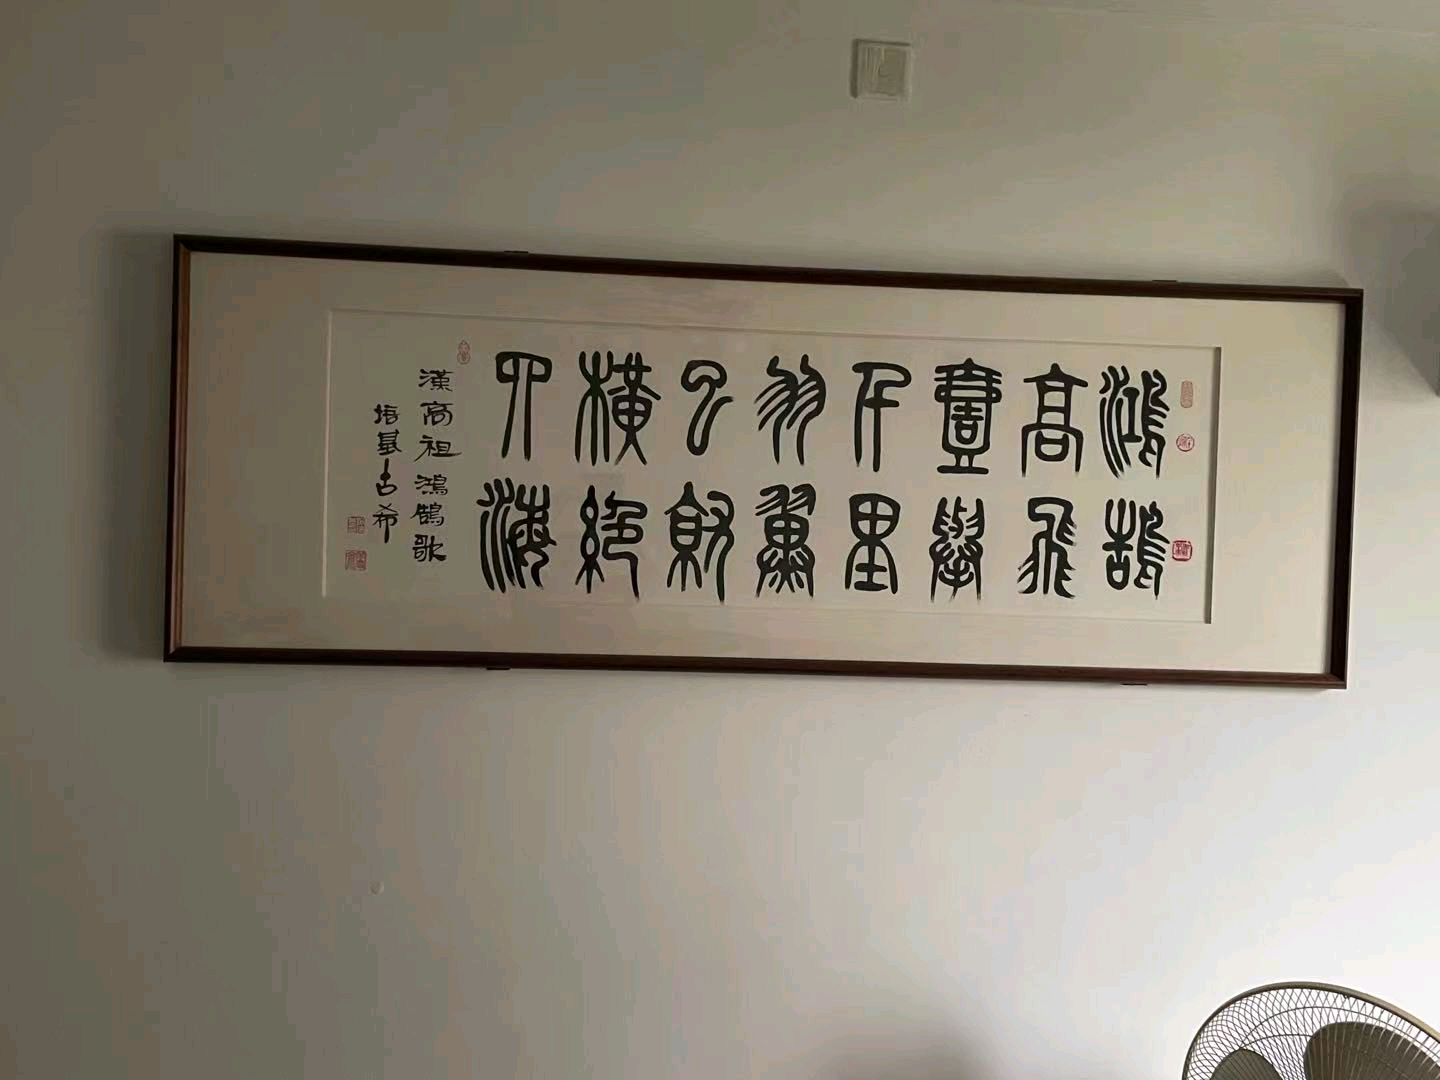 鴻鵠
高飛
壹舉
千里
羽翼
已就
橫絕
四海
漢高祖鴻鵠歌
培基古希